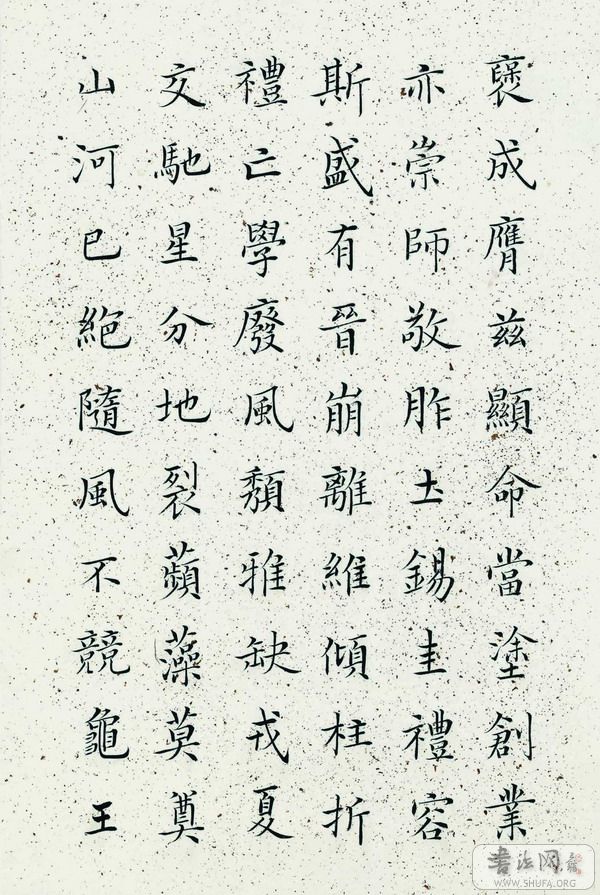 襃成膺茲顯命當塗創業
亦崇師敬胙土錫圭禮容
斯盛有晉崩離維傾柱折
禮亡學廢風頽雅缺戎夏
交馳星分地裂蘋藻莫奠
山河已絕隨風不競龜王
書法网
WWW.SHUFA.ORG